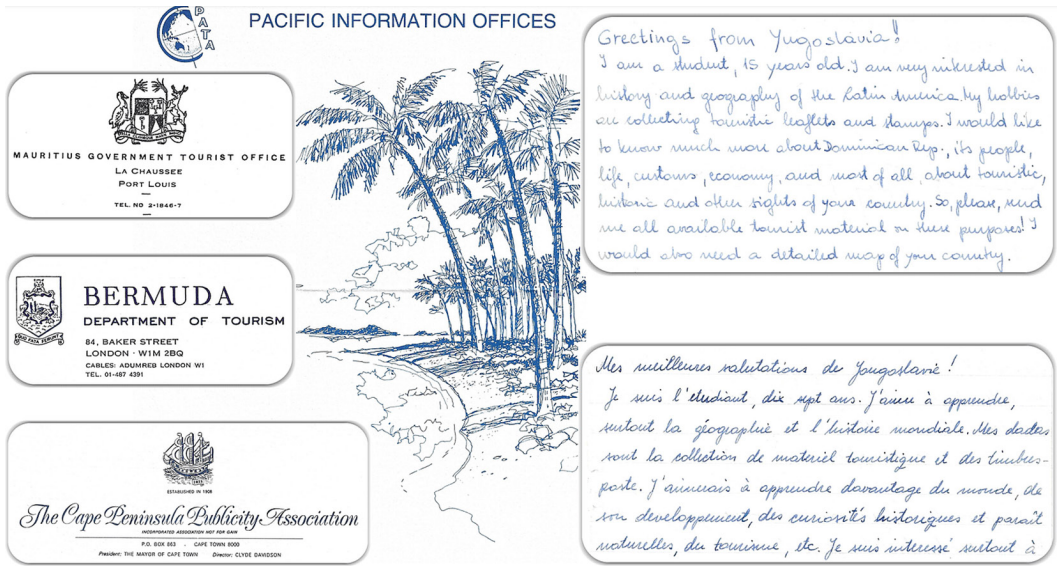 PATA
PACIFIC INFORMATION OFFICES
MAURITIUS GOVERNMENT TOURIST OFFICE
LA CHAUSSEE
PORT LOUIS
TEL. NO 2-1846-7
QUO FATA FERUNT
BERMUDA
DEPARTMENT OF TOURISM
84, BAKER STREET
LONDON · W1M 2BQ
CABLES: ADUMREB LONDON W1
TEL. 01-487 4391
ESTABLISHED IN 1909
The Cape Peninsula Publicity Association
INCORPORATED ASSOCIATION NOT FOR GAIN
P.O. BOX 863 . CAPE TOWN 8000
President: THE MAYOR OF CAPE TOWN Director: CLYDE DAVIDSON
Greetings from Yugoslavia!
I am a student, 15 years old. I am very interested in
history and geography of the Latin America. My hobbies
are collecting touristic leaflets and stamps. I would like
to know much more about Dominican Rep., its people,
life, customs, economy, and most of all, about touristic,
historic and other sights of your country. So, please, send
me all available tourist material on these purposes! I
would also need a detailed map of your country.
Mes meilleures salutations de Yougoslavie!
Je suis l'étudiant, dix sept ans. J'aime à apprendre,
surtout la géographie et l'histoire mondiale. Mes dadas
sont la collection de materiel touristique et des timbres-
poste. J'aimerais à apprendre davantage du monde, de
son developpement, des curiosités historiques et
naturelles, du tourisme, etc. Je suis interessé surtout à